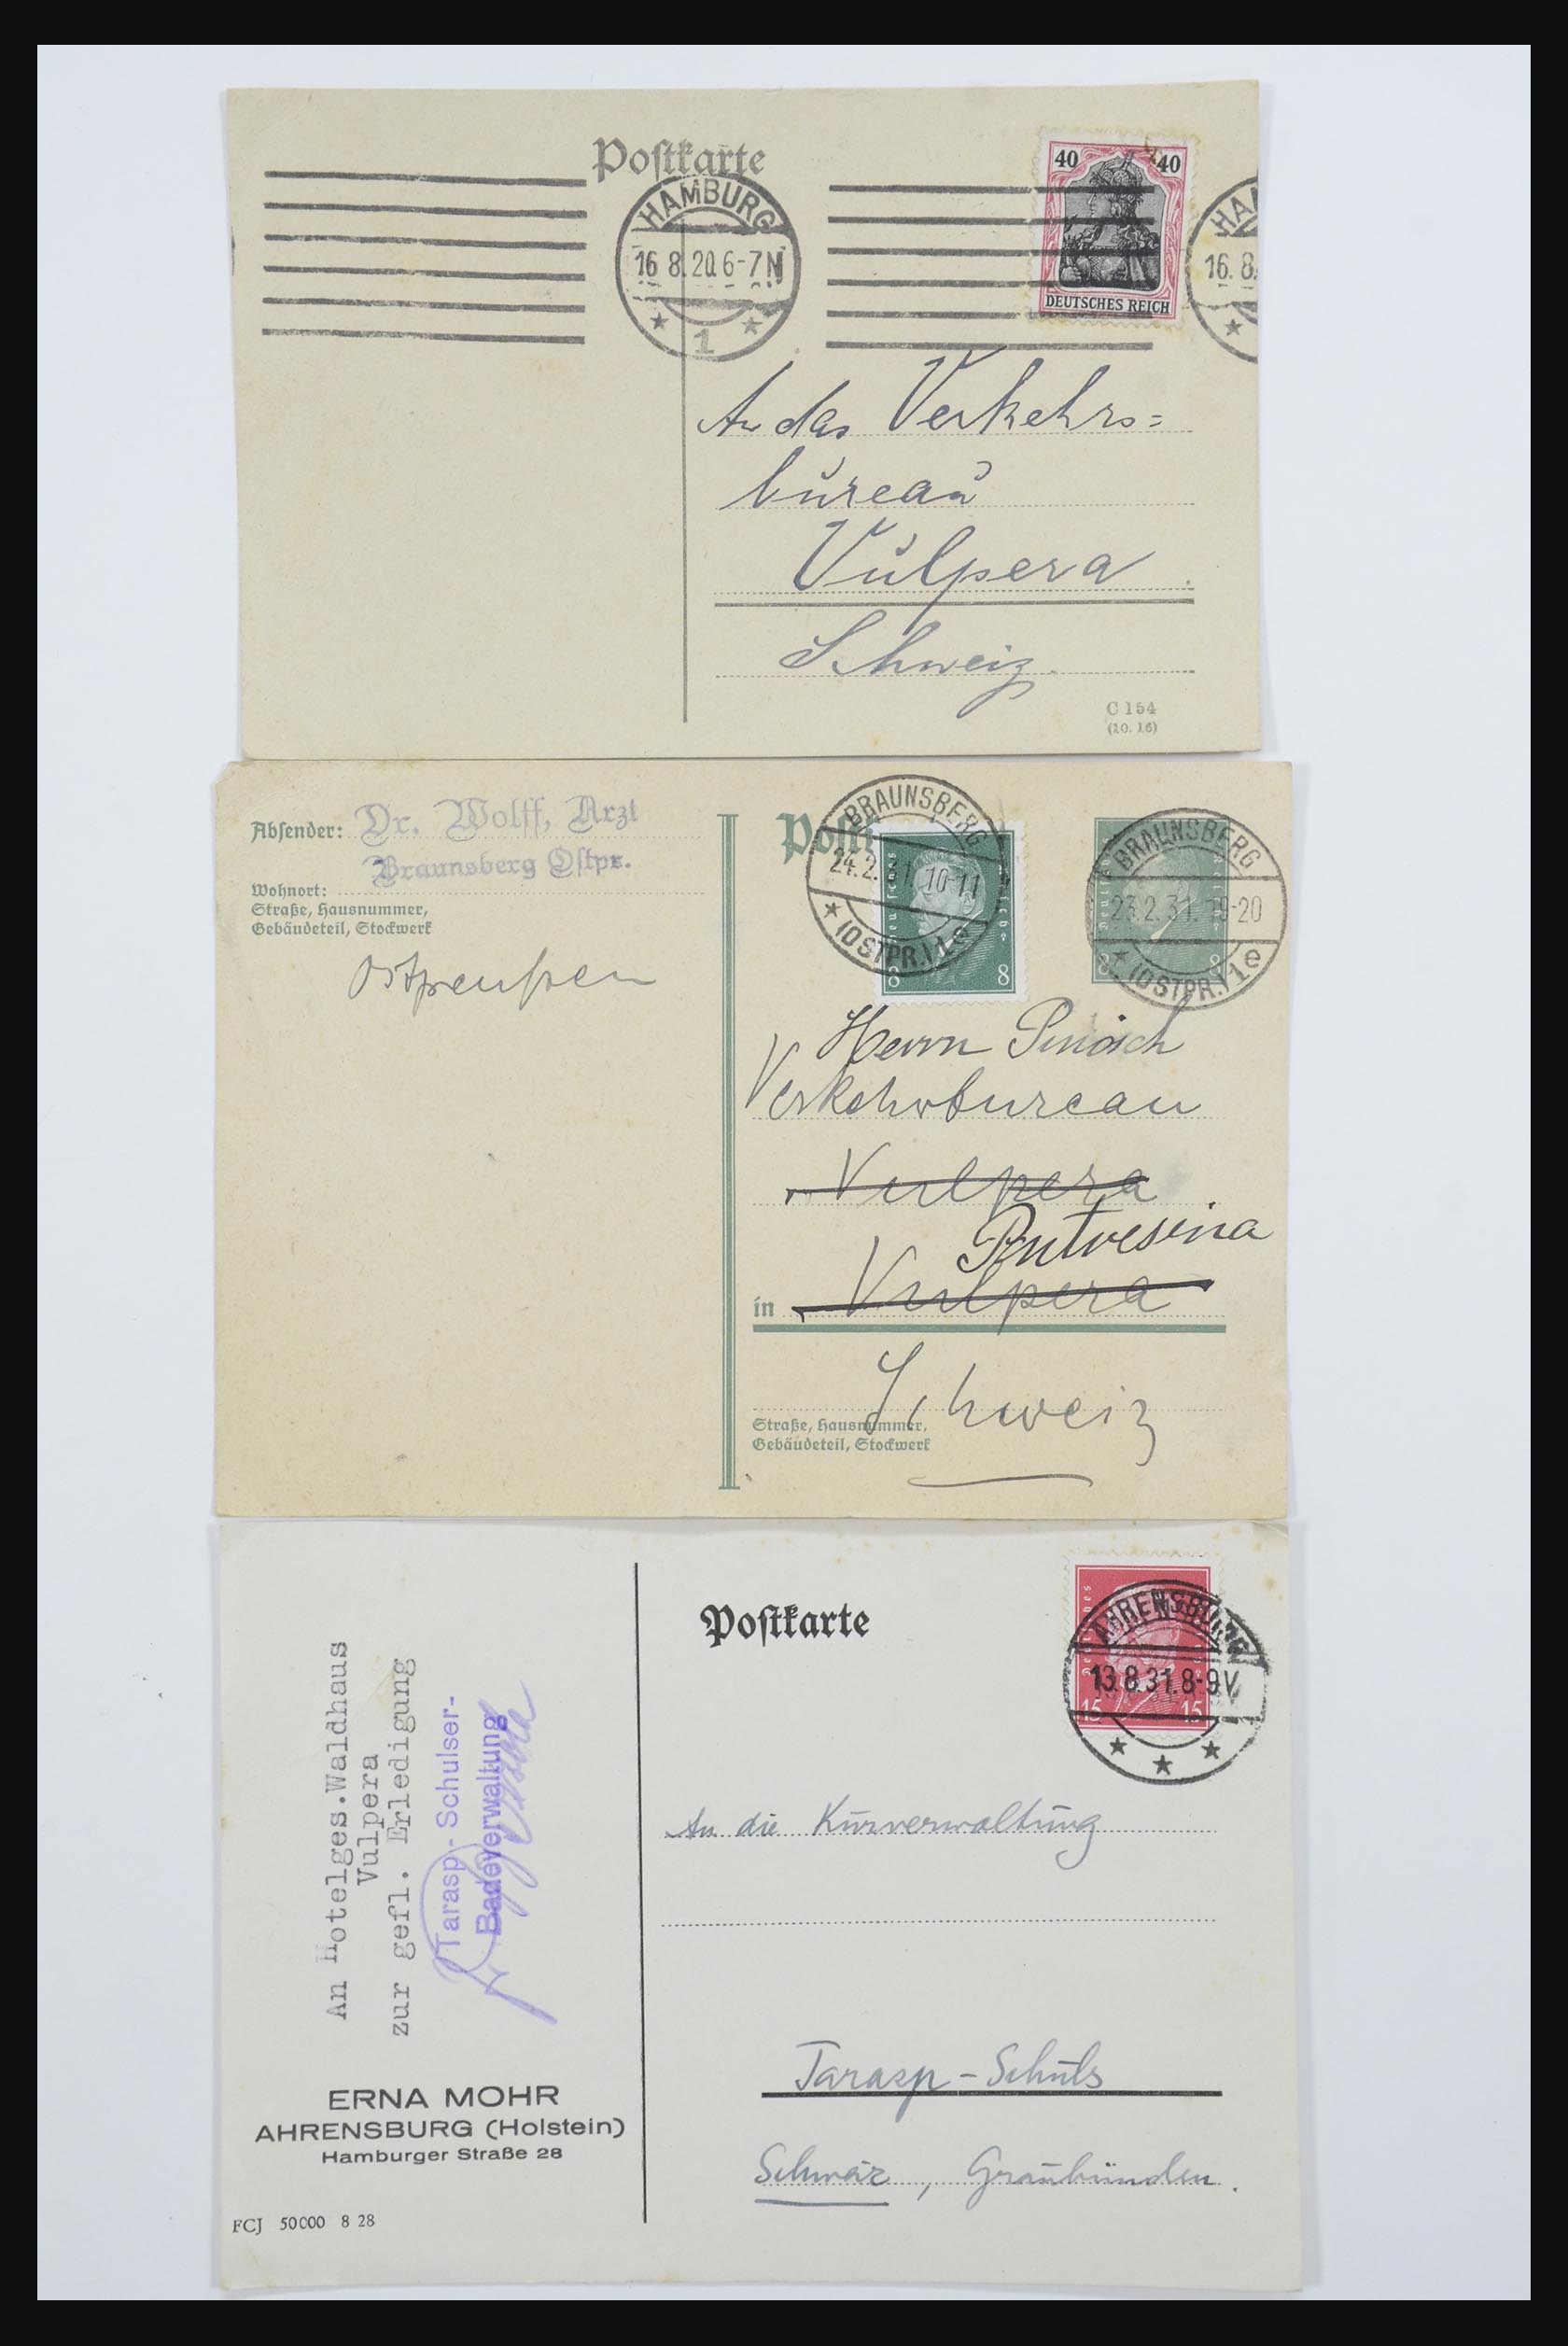 Postkarte
HAMBURG
16 8.20.6-7N
1
40 40
DEUTSCHES REICH
HA
16.8
An das Verkehrs=
bureau
Vulpera
Schweiz.
C 154
(10. 16)
Absender: Dr. Wolff, Arzt
Braunsberg Ostpr.
Wohnort:
Straße, Hausnummer,
Gebäudeteil, Stockwerk
Ostpreußen
Postk
BRAUNSBERG
24.2.31. 10-11
(OSTPR.) 1e
8 8
BRAUNSBERG
23.2.31. 19-20
(OSTPR.) 1e
8 8
Herrn Pinösch
Verkehrsbureau
Vulpera
Pontresina
in Vulpera
Schweiz
Straße, Hausnummer,
Gebäudeteil, Stockwerk
Postkarte
AHRENSBURG
13.8.31.8-9V
15 15
An Hotelges.Waldhaus
Vulpera
zur gefl. Erledigung
Tarasp-Schulser-
Badeverwaltung
An die Kurverwaltung
Tarasp-Schuls
Schweiz, Graubünden.
ERNA MOHR
AHRENSBURG (Holstein)
Hamburger Straße 28
FCJ 50000 8 28